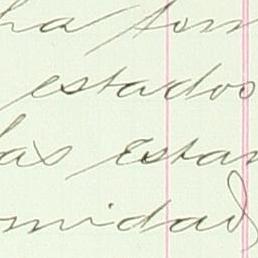 ha tom
estados
las estan
midad